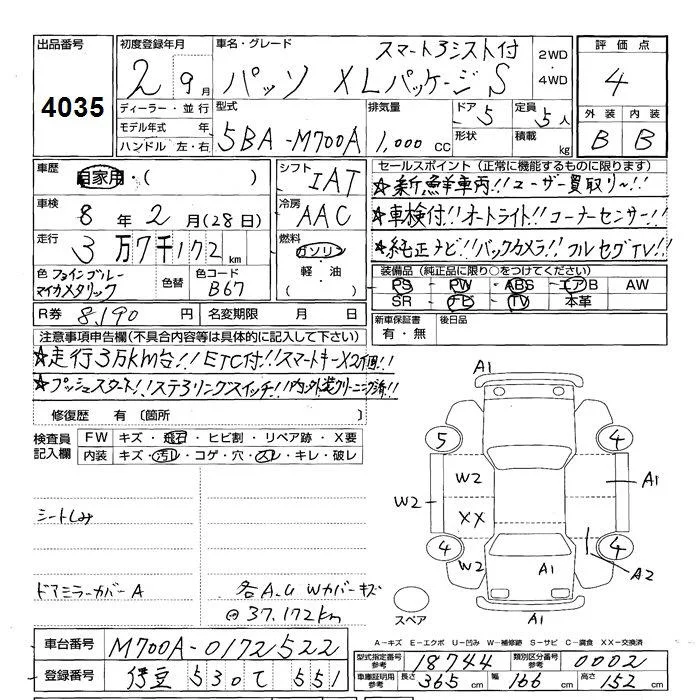 出品番号
4035
初度登録年月
2 9月
車名・グレード
スマート3シスト付
パッソ XLパッケージS
2WD
4WD
評価点
4
外装 内装
B B
ディーラー・並行
モデル年式 年
ハンドル 左・右
型式
5BA-M700A
排気量
1,000 CC
ドア
5
形状
定員
5人
積載
kg
車歴
自家用・( )
車検
8年2月(28日)
走行
3万7千172 km
色 ファインブルーマイカメタリック
色替
色コード
B67
シフト
IAT
冷房
AAC
燃料
ガソリン
軽・油
セールスポイント(正常に機能するものに限ります)
☆新鮮車両!!ユーザー買取り〜!!
☆車検付!!オートライト!!コーナーセンサー!!
☆純正ナビ!!バックカメラ!!フルセグTV!!
装備品(純正品に限り○をつけてください)
PS PW ABS エアB AW
SR ナビ TV 本革
R券 8,190円
名変期限 月 日
新車保証書
有・無
後日品
注意事項申告欄(不具合内容等は具体的に記入して下さい)
☆走行3万km台!!ETC付!!スマートキーX2個!!
☆プッシュスタート!!ステアリングスイッチ!!内外装クリーニング済!!
修復歴 有(箇所 )
検査員記入欄
FW キズ・飛石・ヒビ割・リペア跡・X要
内装 キズ・汚レ・コゲ・穴・スレ・キレ・破レ
シートしみ
ドアミラーカバーA
各A.U Wカバーキズ
@37.172km
A1
5
4
W2
W2
A1
XX
4
W2
A1
4
A2
スペア
A1
A-キズ E-エクボ U-凹み W-補修跡 S-サビ C-腐食 XX-交換済
車台番号 M700A-0172522
登録番号 伊豆 530 て 551
型式指定番号参考 18744
類別区分番号参考 0002
車庫証明用参考 長さ 365 cm 幅 166 cm 高さ 152 cm